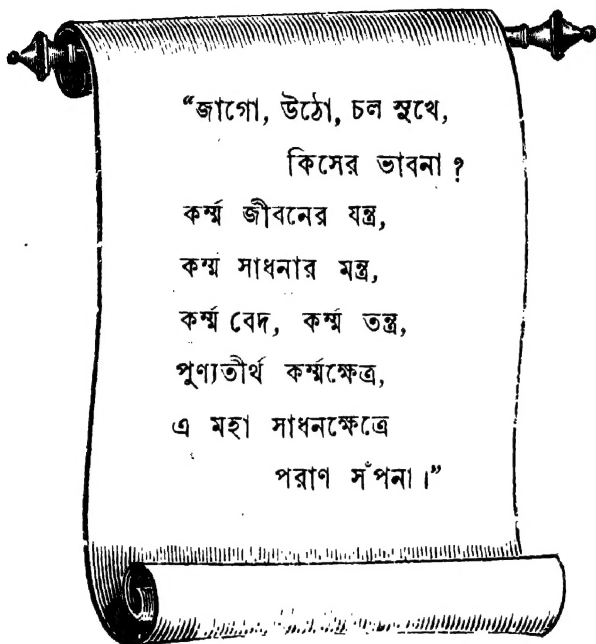 “জাগো, উঠো, চল সুখে,
কিসের ভাবনা?
কর্ম্ম জীবনের যন্ত্র,
কর্ম্ম সাধনার মন্ত্র,
কর্ম্ম বেদ, কর্ম্ম তন্ত্র,
পুণ্যতীর্থ কর্ম্মক্ষেত্র,
এ মহা সাধনক্ষেত্রে
পরাণ সঁপনা।”